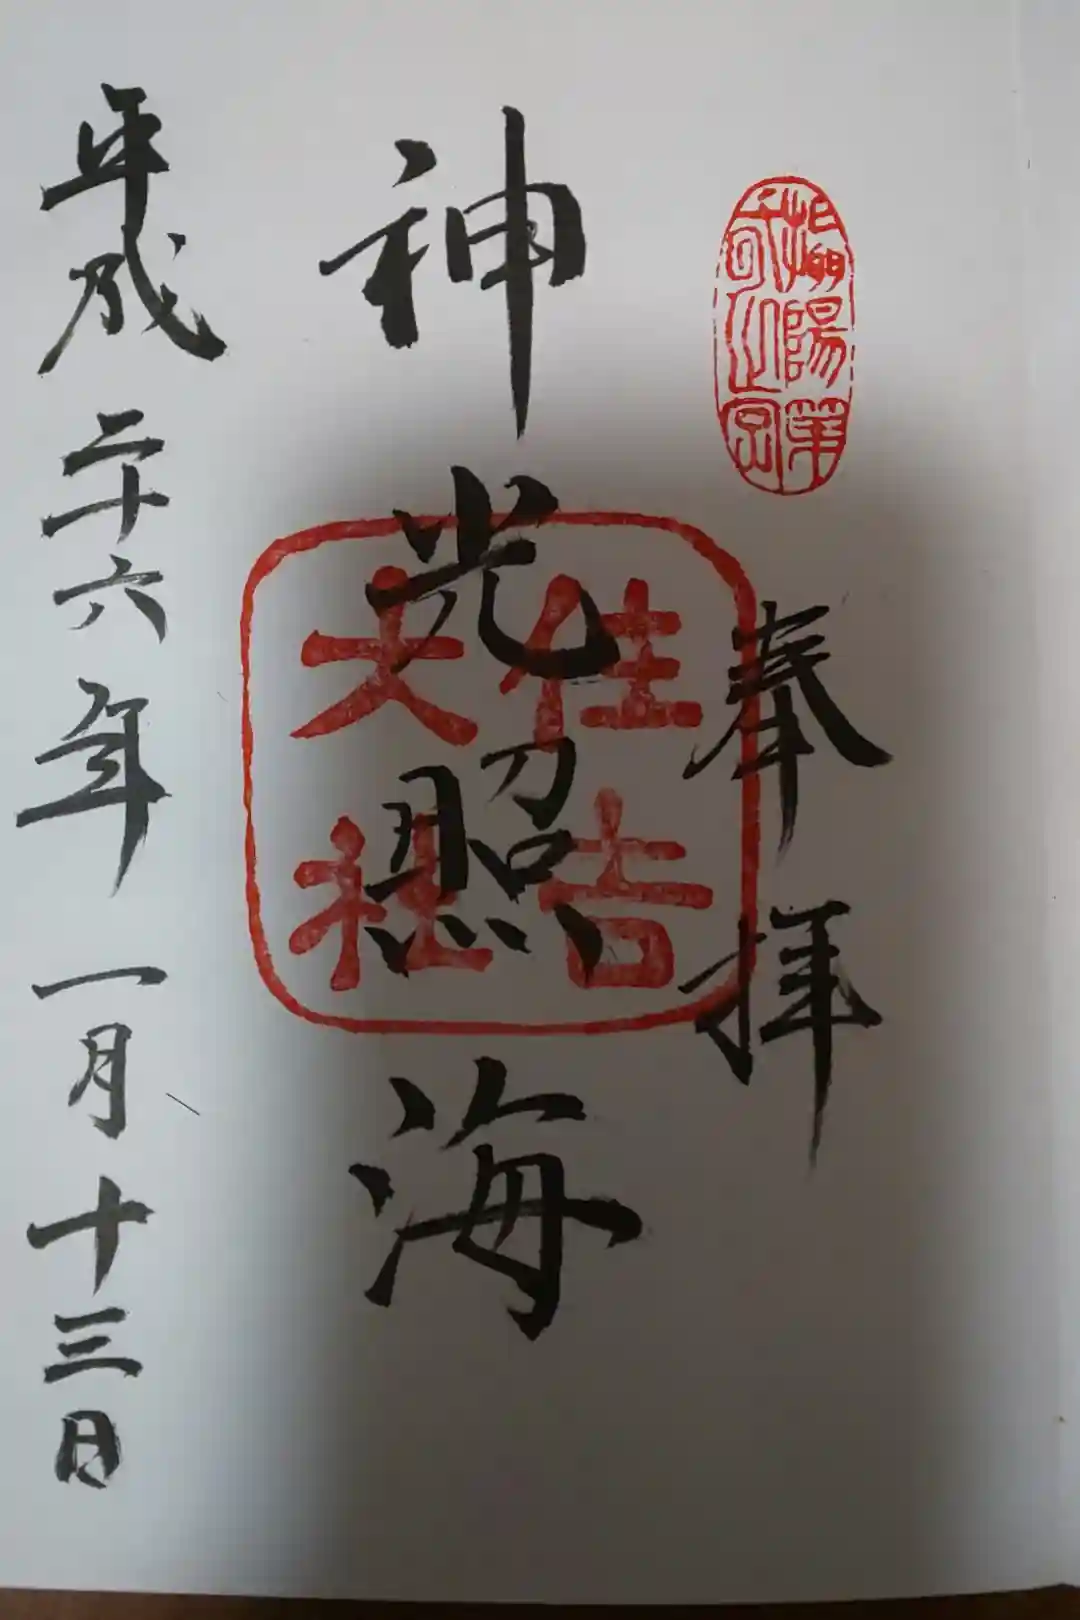 陽第
之宮
奉拝
住吉
大社
神光照海
平成二十六年一月十三日